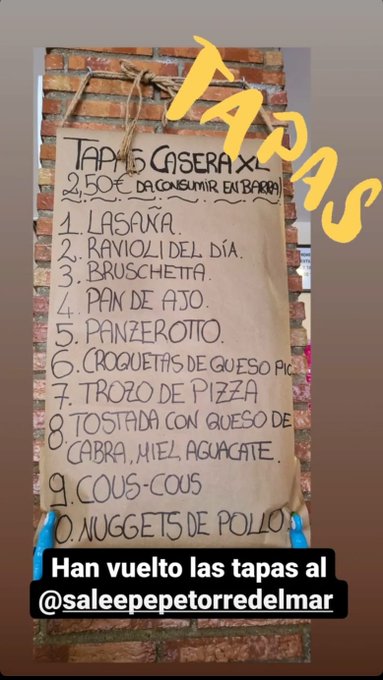 TAPAS
TAPAS CASERA XL
2,50€ DA CONSUMIR EN BARRA!
1. LASAÑA.
2. RAVIOLI DEL DÍA.
3. BRUSCHETTA.
4. PAN DE AJO.
5. PANZEROTTO.
6. CROQUETAS DE QUESO PIC
7. TROZO DE PIZZA
8. TOSTADA CON QUESO DE
CABRA, MIEL, AGUACATE.
9. COUS-COUS
0. NUGGETS DE POLLO
Han vuelto las tapas al
@saleepepetorredelmar